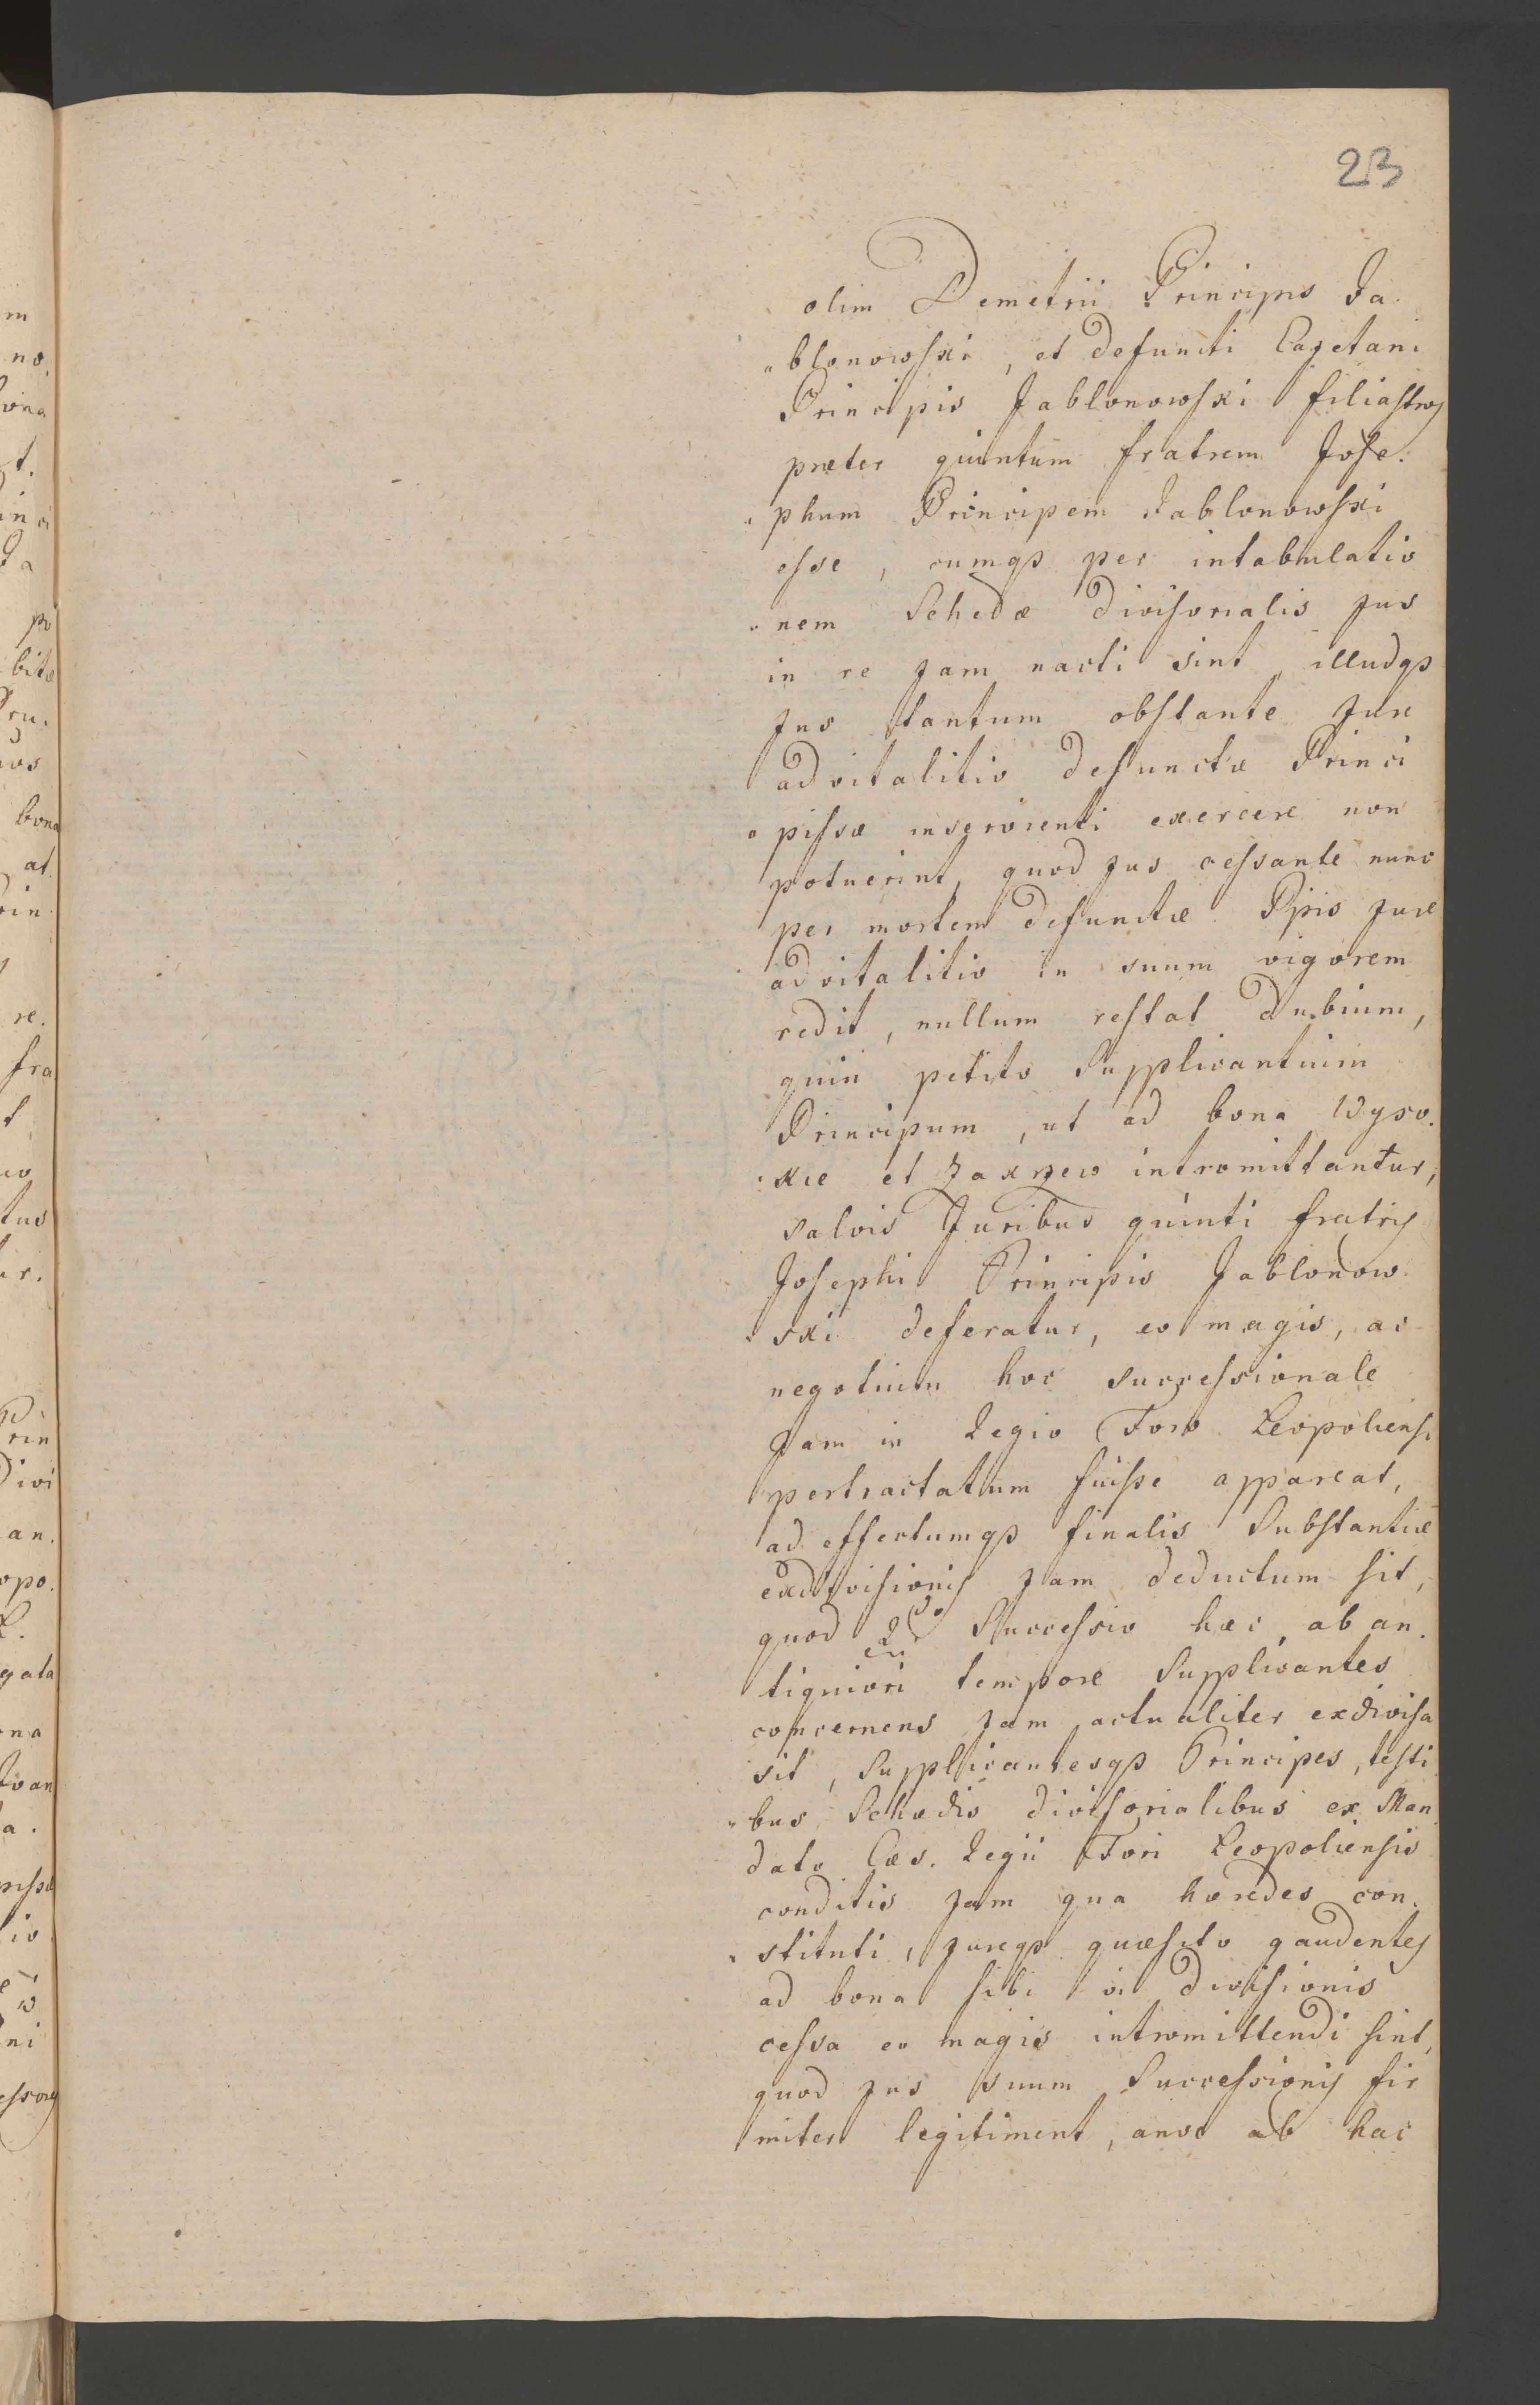 23
olim Demetrii Principis Ja
„blonowski, et defuncti Cajetani
Principis Jablonowski filiastros
præter quintum fratrem Jose.
„phum Principem Jablonowski
esse, cumqꝫ per intabulatio
„nem Schedæ divisorialis jus
in re jam nacti sint, illudqꝫ
jus tantum obstante jure
advitalitio defunctæ Princi
„pissæ inservienti exercere non
potuerint, quod jus cessante nunc
per mortem defunctæ Ppis jure
advitalitio in suum vigorem
redit, nullum restat dubium,
quin petito Supplicantium
Principum, ut ad bona Wyso.
„kie et Zakrzew intromittantur,
salvis Juribus quinti fratris
Josephi Principis Jablonow
„ski deferatur, eo magis, ac
negotium hoc successionale
Jam in Regio Foro Leopoliensi
pertractatum fuisse appareat,
ad effectumqꝫ finalis Substantiæ
exdivisionis jam deductum sit,
quod 2do Successio hæc, ab an.
tiquiori tempore Supplicantes
concernens jam actualiter exdivisa
sit, Supplicantesqꝫ Principes, testi
„bus Schædis divisorialibus ex Man
dato Cæs. Regii Fori Leopoliensis
conditis jam qua hæredes con.
„stituti, jureqꝫ quæsito gaudentes
ad bona sibi vi divisionis
cessa eo magis intromittendi sint,
quod jus suum Successionis fir
miter legitiment, ab hac